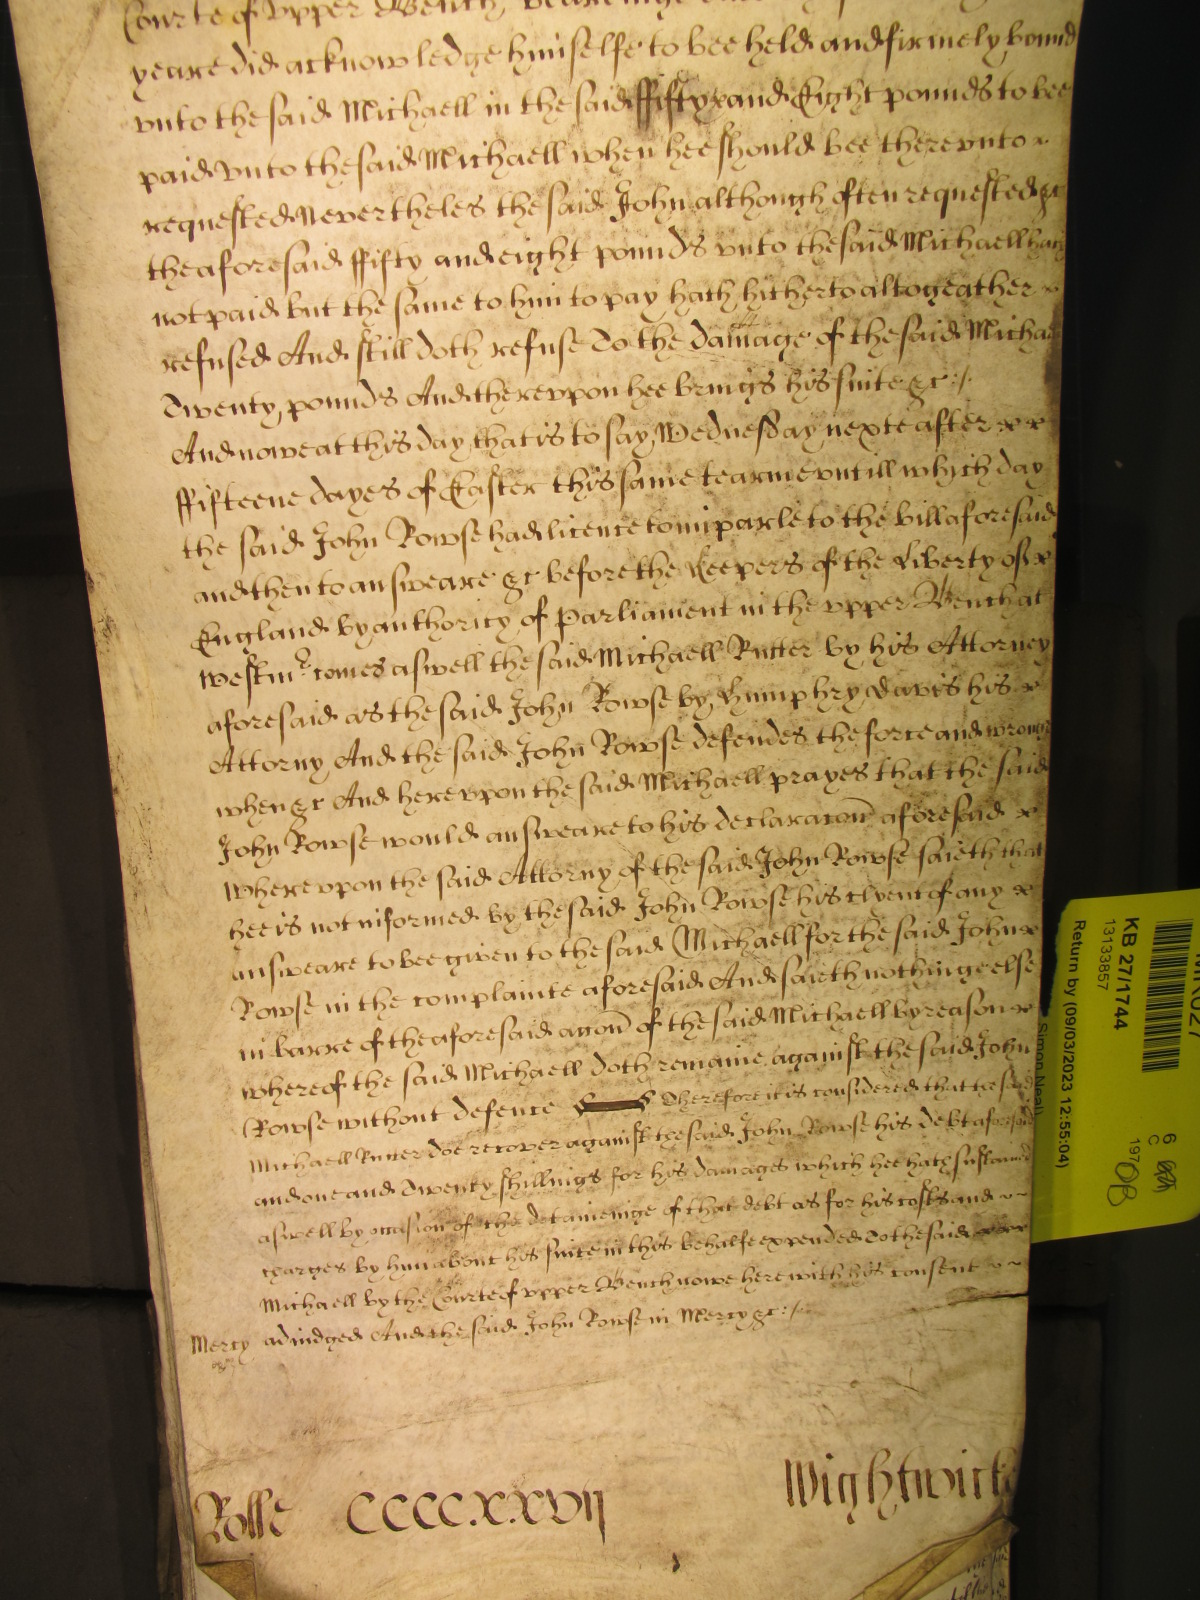 Courte of vpper Bench,
yeare did acknowledge himselfe to bee held and firmely bound
vnto the said Michaell in the said ffifty and Eight pounds to bee
paid vnto the said Michaell when hee should bee therevnto
requested Nevertheles the said John although often requested &c
the aforesaid ffifty and eight pounds vnto the said Michaell hath
not paid but the same to him to pay hath hitherto altogeather
refused And still doth refuse To the damage of the said Michaell
Twenty pounds And therevpon hee brings his suite &c:/.
And nowe at this day that is to say Wednesday nexte after
ffifteene dayes of Easter this same tearme vntill which day
the said John Rowse had licence to imparle to the bill aforesaid
and then to answeare &c before the Keepers of the Liberty of
England by authority of Parliament in the vpper Bench at
Westmr. comes aswell the said Michaell Rutter by his Attorney
aforesaid as the said John Rowse by Humphry Davis his
Attorny And the said John Rowse defendes the force and wronge
when &c And herevpon the said Michaell prayes that the said
John Rowse would answeare to his declaracon aforesaid
wherevpon the said Attorny of the said John Rowse saieth that
hee is not informed by the said John Rowse his clyent of any
answeare to bee given to the said Michaell for the said John
Rowse in the complainte aforesaid And saieth nothinge else
in barre of the aforesaid accon of the said Michaell by reason
whereof the said Michaell doth remaine against the said John
Rowse without defence Therefore it is considered that the said
Michaell Rutter doe recover against the said John Rowse his debt aforesaid
and one and Twenty shillings for his damages which hee hath sustained
aswell by occasion of the deteineinge of that debt as for his costs and
charges by him about his suite in this behalfe expended To the said
Michaell by the Courte of vpper Bench nowe here with his consent
Mercy adiudged And the said John Rowse in Mercy &c:/.
Rolle CCCC.XXVIJ Wightwicke
KB 27/1744
13133857
Return by (09/03/2023 12:55:04)
Simon Neal
6
C
197